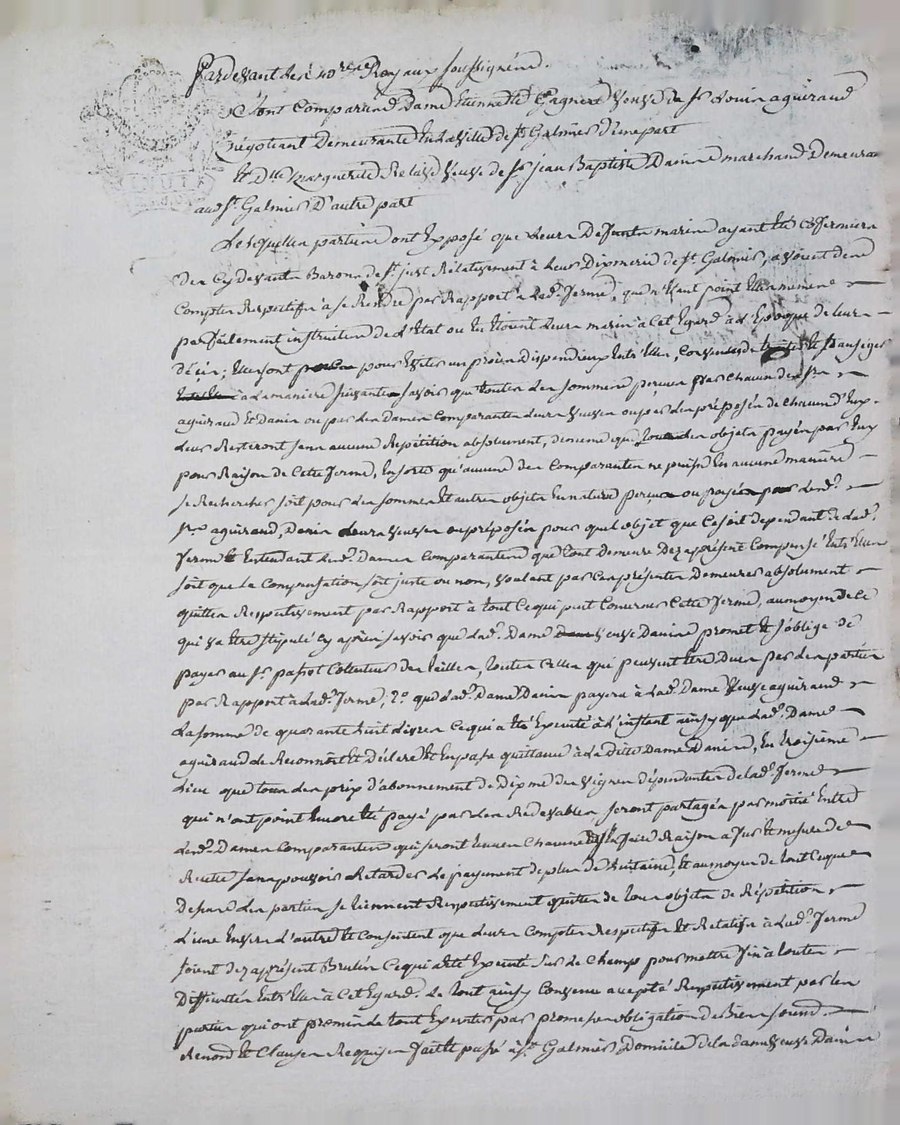 Pardevant les no.res Royaux soussignés.
Sont Comparues Dame Etiennette Veuve de Sr Louis aguiraud
Négotiant Demeurante En la Ville de St Galmier d'une part
Et Dlle Marguerite Veuve de Sr jean Baptiste Danine marchand Demeuran
audt St Galmier D'autre part
Lesquelles parties ont Exposé que Leurs Deffunts maris ayant Eté Cofermiers
Des Cydevants Barons de St just Relativement à Leur Dixmerie de St Galmier, avoient des
Comptes Respectifs à se Rendre par Rapport à Lade ferme, que n'Etant point Elles mêmes
parfaitement instruites de L'Etat ou En Etoient Leurs maris à Cet Egard à L'Epoque de Leurs
décès; Elles ont pour Eviter un procès dispendieux Entr'Elles Convenu de traiter Et transiger
à la maniere suivante savoir que toutes Les sommes perçues par chacun des Srs
aguiraud Et Danin ou par Les Dames Comparantes Leurs Veuves ou par Les préposés de chacun d'Eux
Leur Resteront sans aucune Repetition absolument, de même que Les objets payés par Eux
pour Raison de Cette ferme, En sorte qu'aucune des Comparantes ne puisse En aucune maniere
se Rechercher soit pour Les sommes Et autres objets En nature perçus ou payés par Lesds
Srs aguiraud, Danin Leurs Veuves ou préposés pour quel objet que Ce soit dependant de Lade
ferme Et Entendant Lesds Dames Comparantes que tout Demeure Dez apprésent Compensé Entr'Elles
soit que La Compensation soit juste ou non, voulant par Ces présentes Demeurer absolument
quittes Respectivement par Rapport à tout Ce qui peut Concerner Cette ferme, au moyen de Ce
qui va Etre stipulé Cy après savoir que Lade Dame Veuve Danine promet Et s'oblige De
payer au Sr Collecteur des tailles, toutes Celles qui peuvent Etre Dues par Les parties
par Rapport à Lade ferme, 2° que Lade Dame Danin payera à Lade Dame Veuve aguiraud
La somme de quarante huit Livres Ce qui a Eté Executé à L'instant ainsy que Lade Dame
aguiraud Le Reconnoît Et déclare Et En passe quittance à La dite Dame Danine, En troisième
Lieu que tous Les prix d'abonnement de Dixme des Vignes dépendantes de Lade ferme
qui n'ont point Encore Eté payé par Les Redevables seront partagés par moitié Entre
Lesds Dames Comparantes qui seront tenues chacune De se faire Raison a fur Et mesure de
Recette sans pouvoir Retarder Le payement de plus de huitaine, Et au moyen de tout Ce que
Dessus Les parties se tiennent Respectivement quittes de tous objets de Répétition
L'une Envers L'autre Et Consentent que Leurs Comptes Respectifs Et Relatifs à Lade ferme
soient dez apprésent Brulés Ce qui a Eté Executé Sur Le Champ pour mettre fin à toutes
Difficultés Entr'Elles à Cet Egard. Le tout ainsy Convenu accepté Respectivement par Les
parties qui ont promis Le tout Executer par promesse obligation de Biens soum.
Renon. Et Clauses Requises fait Et passé à St Galmier Domicile de la dame Veuve Danine